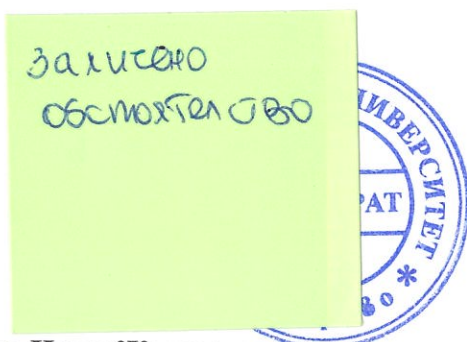 заличено
обстоятелство
ИВЕРСИТЕТ *
РАТ